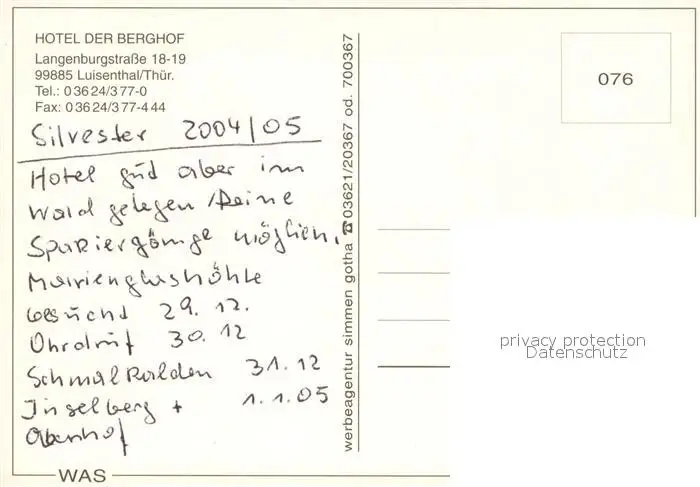 HOTEL DER BERGHOF
Langenburgstraße 18-19
99885 Luisenthal/Thür.
Tel.: 0 36 24/3 77-0
Fax: 0 36 24/3 77-4 44
Silvester 2004/05
Hotel gut aber im
Wald gelegen / keine
Spaziergänge möglich.
Marienglashöhle
besucht 29. 12.
Ohrdruf 30. 12
Schmalkalden 31. 12
Inselberg + 1. 1. 05
Oberhof
WAS
werbeagentur simmen gotha ☎ 03621/20367 od. 700367
076
privacy protection
Datenschutz